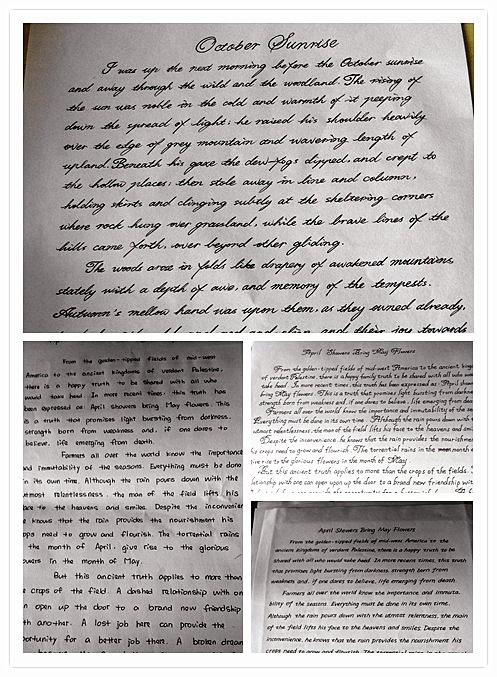 October Sunrise
I was up the next morning before the October sunrise
and away through the wild and the woodland. The rising of
the sun was noble in the cold and warmth of it peeping
down the spread of light; he raised his shoulder heavily
over the edge of grey mountain and wavering length of
upland. Beneath his gaze the dew-fogs dipped, and crept to
the hollow places; then stole away in line and column,
holding skirts and clinging subtly at the sheltering corners
where rock hung over grassland, while the brave lines of the
hills came forth, over beyond other gliding.
The woods arose in folds like drapery of awakened mountains,
stately with a depth of awe, and memory of the tempests.
Autumn's mellow hand was upon them, as they owned already,
and their joy towards
From the golden-tipped fields of mid-west
America to the ancient kingdoms of verdant Palestine,
there is a happy truth to be shared with all who
would take heed. In more recent times, this truth has
been expressed as: April showers bring May flowers. This
is a truth that promises light bursting from darkness,
strength born from weakness and, if one dares to
believe, life emerging from death.
Farmers all over the world know the importance
and immutability of the seasons. Everything must be done
in its own time. Although the rain pours down with the
utmost relentlessness, the man of the field lifts his
face to the heavens and smiles. Despite the inconvenien
knows that the rain provides the nourishment his
ops need to grow and flourish. The torrential rains
the month of April, give rise to the glorious
owers in the month of May.
But this ancient truth applies to more than
crops of the field. A dashed relationship with on
n open up the door to a brand new friendship
th another. A lost job here can provide the
portunity for a better job there. A broken dream
April Showers Bring May Flowers
From the golden-tipped fields of mid-west America to the ancient kingd
of verdant Palestine, there is a happy family truth to be shared with all who wo
take heed. In more recent times, this truth has been expressed as: April show
bring May flowers. This is a truth that promises light bursting from darkne
strength born from weakness and, if one dares to believe, life emerging from dea
Farmers all over the world know the importance and immutability of the se
Everything must be done in its own time. Although the rain pours down with
utmost relentlessness, the man of the field lifts his face to the heavens and smi
Despite the inconvenience, he knows that the rain provides the nourishmen
his crops need to grow and flourish. The torrential rains in the month
give rise to the glorious flowers in the month of May.
But this ancient truth applies to more than the crops of the fields.
lationship with one can open up the door to a brand new friendship wi
April Showers Bring May Flowers
From the golden-tipped fields of mid-west America to the
ancient kingdoms of verdant Palestine, there is a happy truth to be
shared with all who would take heed. In more recent times, this truth
that promises light bursting from darkness, strength born from
weakness and, if one dares to believe, life emerging from death.
Farmers all over the world know the importance and immuta-
bility of the seasons. Everything must be done in its own time.
Although the rain pours down with the utmost relentness, the man
of the field lifts his face to the heavens and smiles. Despite the
inconvenience, he knows that the rain provides the nourishment his
crops need to grow and flourish. The torrential rains in the